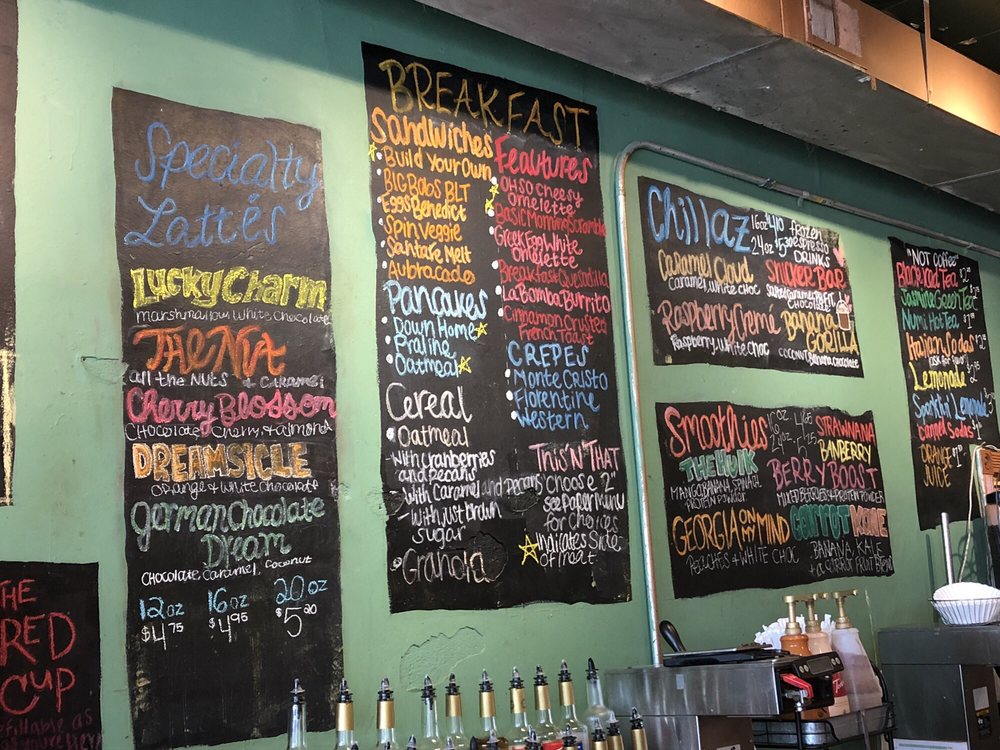 Specialty
Lattés
Lucky Charm
Marshmallow White Chocolate
The Nut
all the Nuts + Caramel
Cherry Blossom
Chocolate Cherry + Almond
DREAMSICLE
Orange + White Chocolate
German Chocolate
Dream
Chocolate, Caramel, Coconut
12oz 16oz 20oz
$4.75 $4.95 $5.20
THE
RED
CUP
BREAKFAST
Sandwiches
Build Your Own
BIG Bobs BLT
Eggs Benedict
Spin Veggie
Santa Fe Melt
Aubracado
Pancakes
Down Home
Praline
Oatmeal
Cereal
Oatmeal
-With cranberries
and pecans
-With Caramel and pecans
-With just brown
sugar
Granola
Features
OH SO Cheesy
Omelette
Basic Morning Scramble
Greek Egg White
Omelette
Breakfast Quesadilla
La Bomba Burrito
Cinnamon Crusted
French Toast
CREPES
Monte Cristo
Florentine
Western
THIS 'N' THAT
Choose 2
see paper menu
for choices
Indicates side
of meat
Chillaz
frozen
espresso
DRINKS
Caramel Cloud
Caramel, White Choc
SNICKER BAR
Raspberry Creme
Raspberry, White Choc
BANANA
GORILLA
Coconut Banana Chocolate
Smoothies
STRAWNANA
BANBERRY
THE HULK
BERRY BOOST
MIXED BERRIES + PROTEIN POWDER
GEORGIA ON MY MIND
PEACHES + WHITE CHOC
BANANA, KALE
"NOT COFFEE"
Black Iced Tea
Numi Hot Tea
Italian Sodas
Lemonade
ORANGE
JUICE